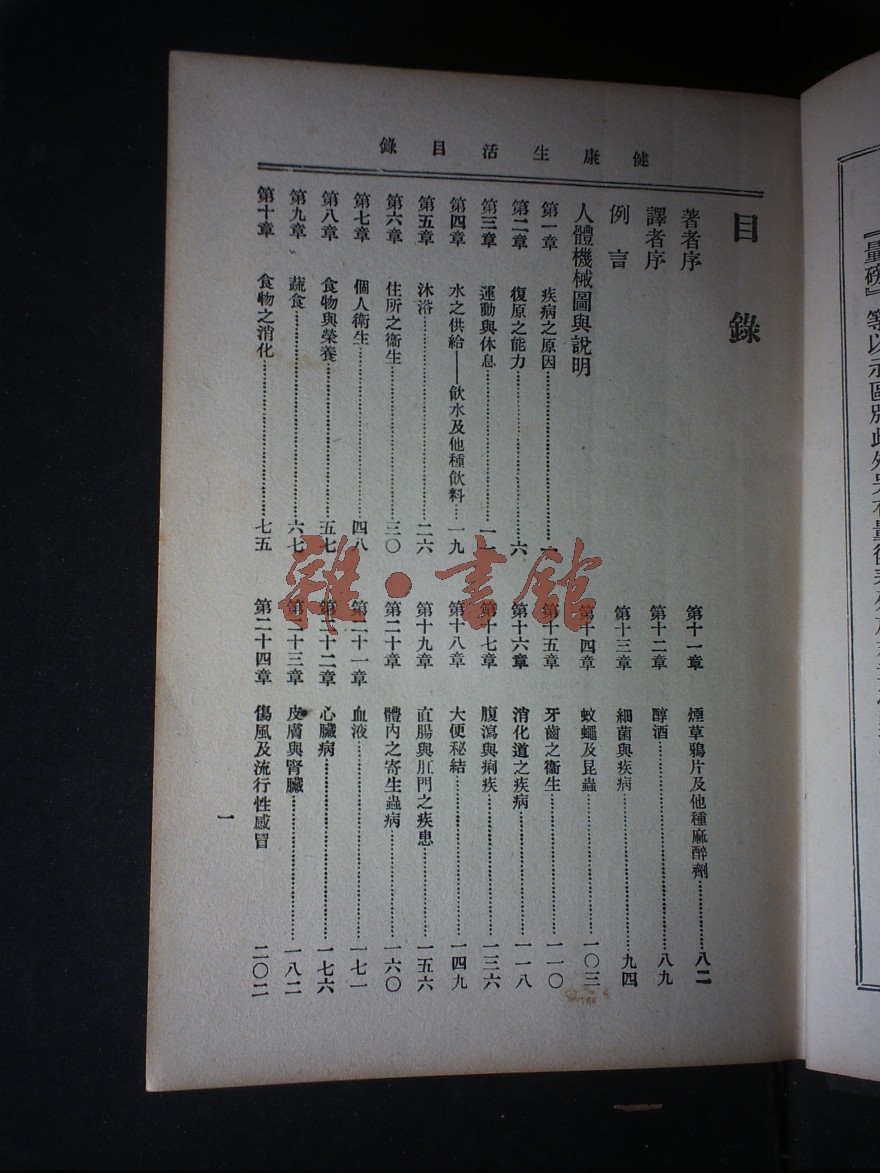 健康生活目錄
目錄
著者序
譯者序
例言
人體機械圖與說明
第一章 疾病之原因 一
第二章 復原之能力 六
第三章 運動與休息
第四章 水之供給——飲水及他種飲料 一九
第五章 沐浴 二六
第六章 住所之衞生 三〇
第七章 個人衞生 四八
第八章 食物與榮養 五七
第九章 蔬食 六七
第十章 食物之消化 七五
第十一章 煙草鴉片及他種麻醉劑 八二
第十二章 醇酒 八九
第十三章 細菌與疾病 九四
第十四章 蚊蠅及昆蟲 一〇三
第十五章 牙齒之衞生 一一〇
第十六章 消化道之疾病 一一八
第十七章 腹瀉與痢疾 一三六
第十八章 大便秘結 一四九
第十九章 直腸與肛門之疾患 一五六
第二十章 體內之寄生蟲病 一六〇
第二十一章 血液 一七一
第二十二章 心臟病 一七六
第二十三章 皮膚與腎臟 一八二
第二十四章 傷風及流行性感冒 二〇二
一
雜·書館
『量磅』等以示區別此外